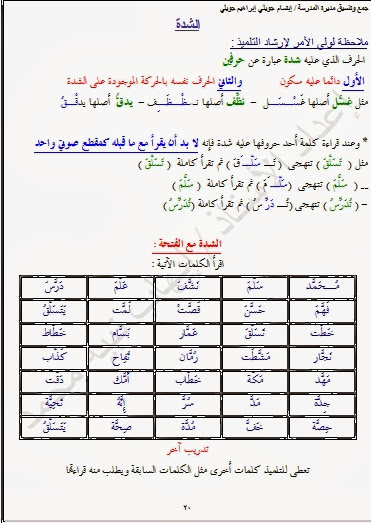 جمع وتنسيق مديرة المدرسة / إبتسام جويلي إبراهيم جويلي
الشدة
ملاحظة لولي الأمر لإرشاد التلميذ :
الحرف الذي عليه شدة عبارة عن حرفين
الأول دائما عليه سكون والثاني الحرف نفسه بالحركة الموجودة على الشدة
مثل غسَّل أصلها غَسْـسَـل – نظَّف أصلها نـَـظْـظَـف – يدقُّ أصلها يدقْـقُ
* وعند قراءة كلمة أحد حروفها عليه شدة فإنه لا بد أن يقرأ مع ما قبله كمقطع صوتي واحد
مثل ( تَسَلَّقَ ) تتهجى ( تَـ سَلَّـ قَ ) ثم تقرأ كاملة ( تَسَلَّقَ )
__ ( سَلَّمَ ) تتهجى ( سَلَّـ مَ ) ثم تقرأ كاملة ( سَلَّمَ )
– ( تُدَرِّسُ ) تتهجى ( تُـ دَرِّ سُ ) ثم تقرأ كاملة ( تُدَرِّسُ )
الشدة مع الفتحة :
اقرأ الكلمات الآتية :
مُـحَمَّد سَلَّمَ نَشَّفَ عَلَّمَ دَرَّسَ
فَهَّمَ حَسَّنَ قَصَّتْ لَمَّت يَتَسَلَّقُ
حَطَّت تَسَلَّقَ عَمَّار بَسَّام خَطَّاط
نَجَّار مَشَّطَت رُمَّان تُفِّاح كَذَّاب
مَهَّد مَكَّة خَطَّاب أُمَّكَ دَقَّت
جِدَّة مَدَّ سُرَّ إِنَّهُ تَحِيَّة
حِصَّة خَفَّ مُدَّة صِحَّة يَتَسَلَّقُ
تدريب آخر
تعطى للتلميذ كلمات أخرى مثل الكلمات السابقة ويطلب منه قراءتها
٢٠